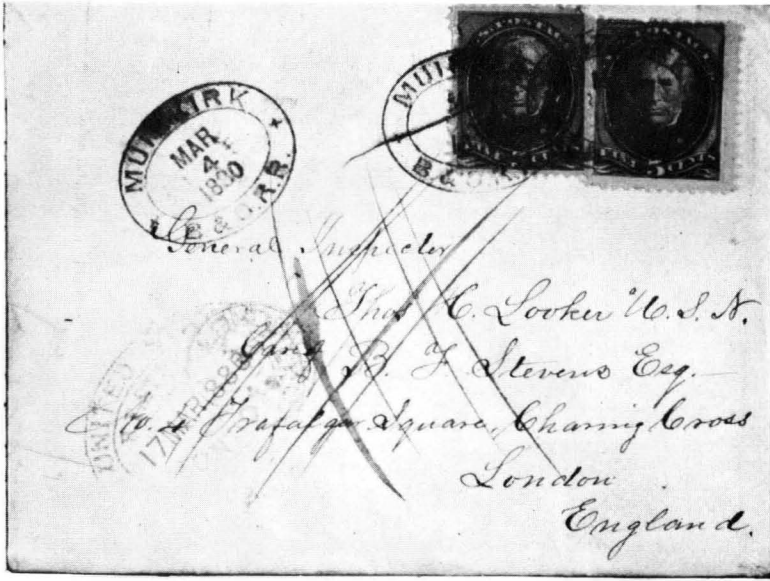 MUIRKIRK
MAR
4
1880
B & O. R.R.
MUIRKIRK
B & O. R.R.
POSTAGE
FIVE CENTS
General Inspector
Thos C. Looker U.S.N.
Care B. F. Stevens Esq.
No. 4 Trafalgar Square, Charing Cross
London
England.
UNITED
17 MAR 1880